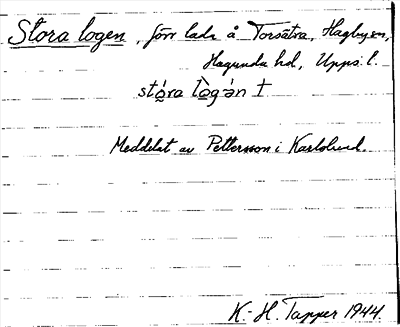 Stora logen, förr lada å Torsätra, Hagby sn,
Hagunda hd, Upps. l.
stóra lògən †
Meddelat av Pettersson i Karlslund.
K.-H. Tapper 1944.